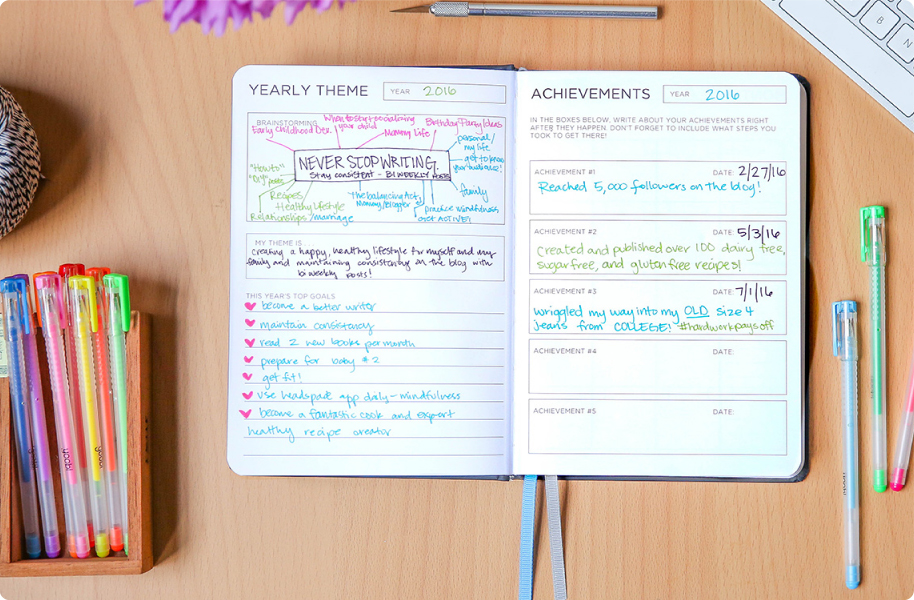 YEARLY THEME
YEAR 2016
BRAINSTORMING
When to start potty training
your child
Birthday Party Ideas
Early Childhood Dev.
Mommy Life
personal/
my life
get to know
your audience!
NEVER STOP WRITING.
Stay consistent - BIWEEKLY POSTS
"How to"
"DIY" posts
Recipes
Healthy Lifestyle
Relationships/marriage
The balancing Act,
Mommy/blogger
family
practice mindfulness
get ACTIVE!
MY THEME IS...
creating a happy, healthy lifestyle for myself and my
family and maintaining consistency on the blog with
bi weekly posts!
THIS YEAR'S TOP GOALS
become a better writer
maintain consistency
read 2 new books per month
prepare for baby # 2
get fit!
use headspace app daily - mindfulness
become a fantastic cook and expert
healthy recipe creator
ACHIEVEMENTS
YEAR 2016
IN THE BOXES BELOW, WRITE ABOUT YOUR ACHIEVEMENTS RIGHT
AFTER THEY HAPPEN. DON'T FORGET TO INCLUDE WHAT STEPS YOU
TOOK TO GET THERE!
ACHIEVEMENT #1 DATE: 2/27/16
Reached 5,000 followers on the blog!
ACHIEVEMENT #2 DATE: 5/3/16
Created and published over 100 dairy free,
sugar free, and gluten free recipes!
ACHIEVEMENT #3 DATE: 7/1/16
wriggled my way into my OLD size 4
jeans from COLLEGE! #hardworkpaysoff
ACHIEVEMENT #4 DATE:
ACHIEVEMENT #5 DATE:
B
N
yoobi